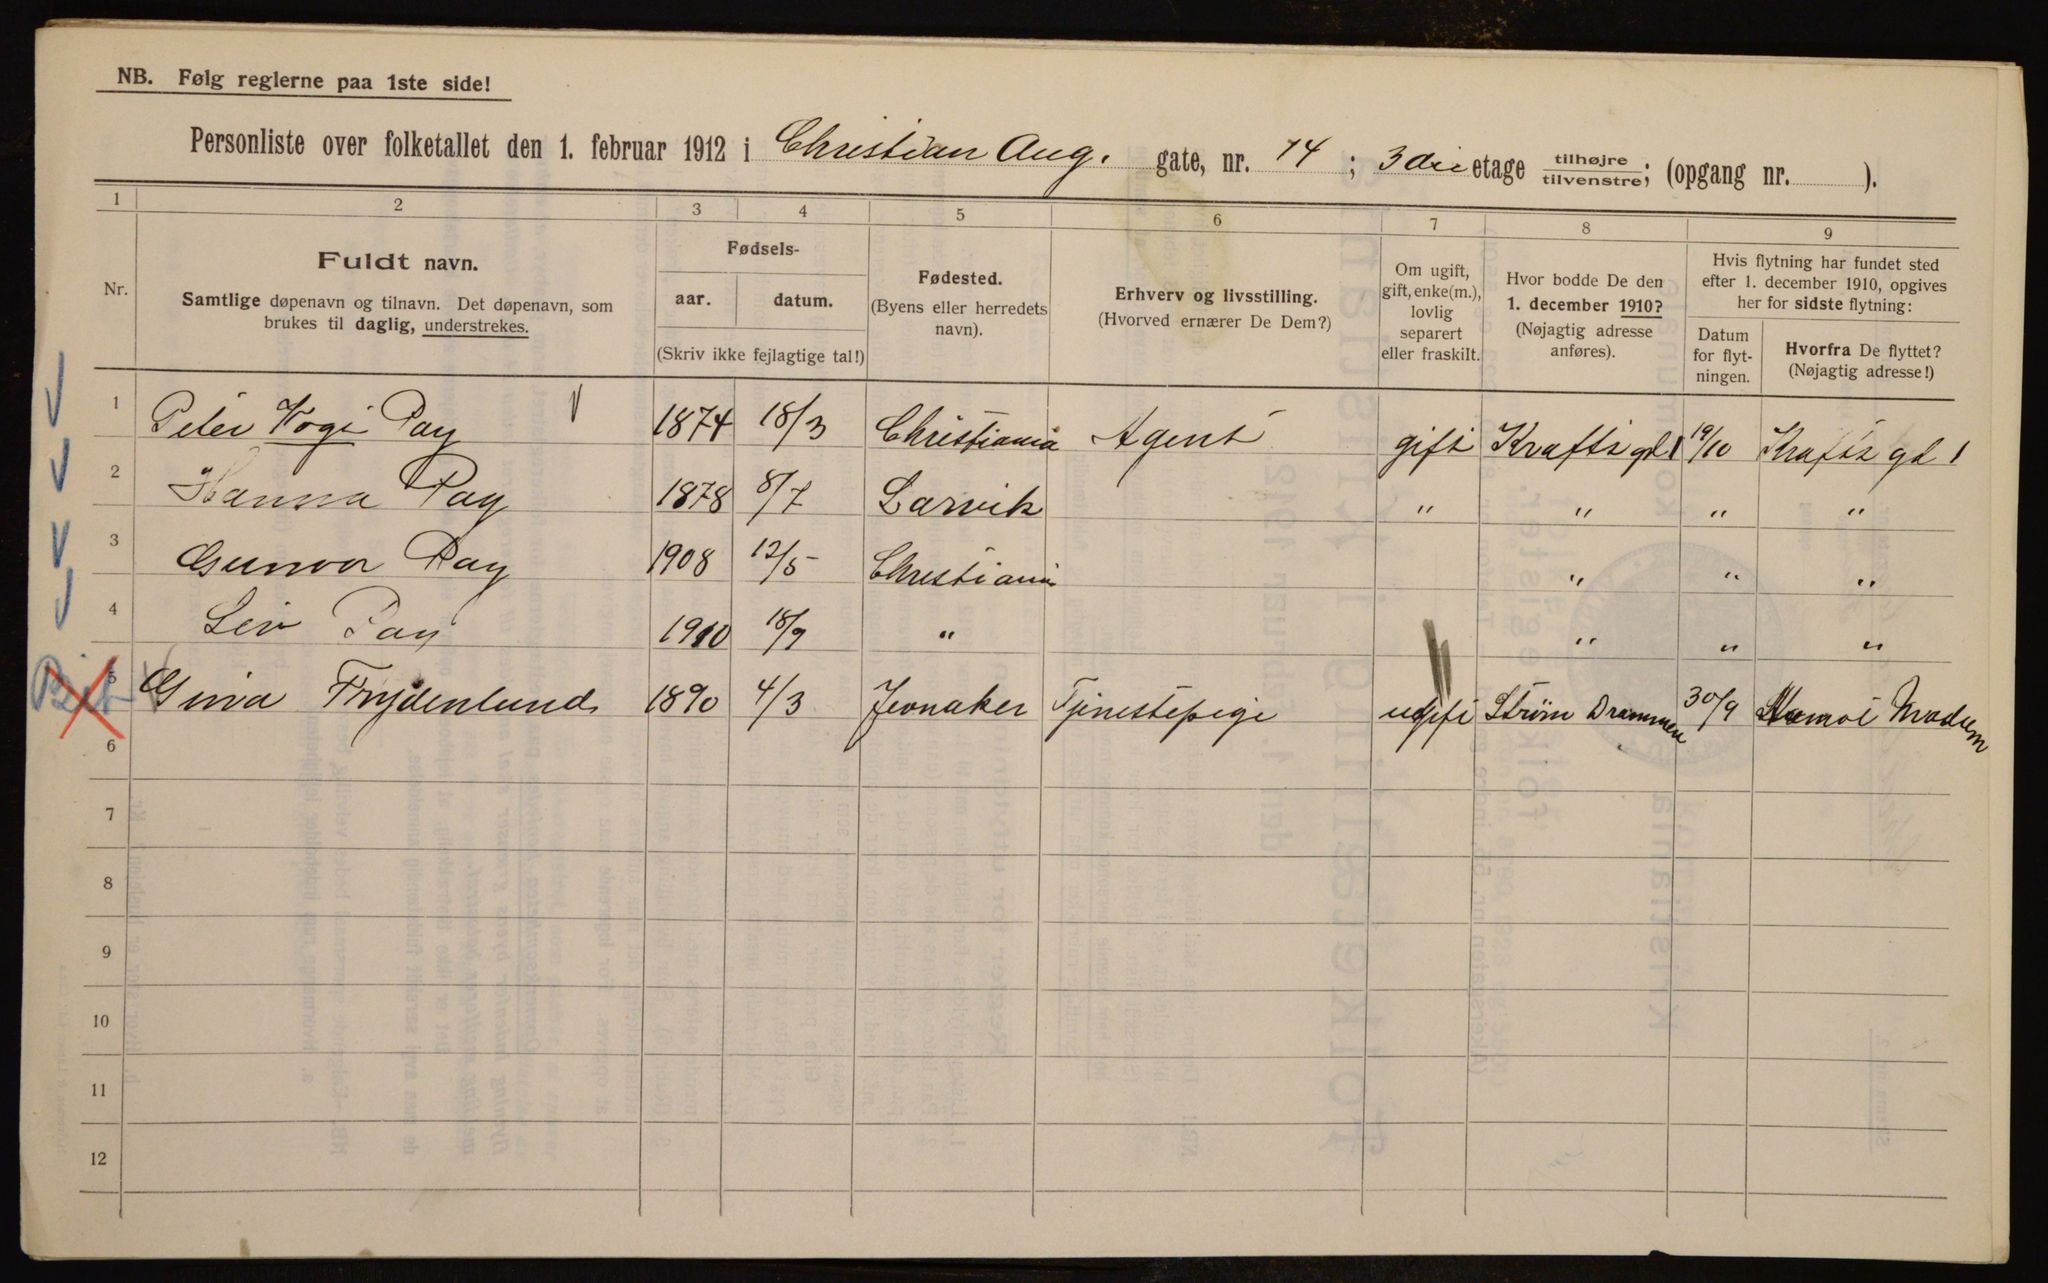 NB. Følg reglerne paa 1ste side!
Personliste over folketallet den 1. februar 1912 i Christian Aug. gate, nr. 14; 3die etage tilhøjre/tilvenstre; (opgang nr. ).
1 2 3 4 5 6 7 8 9
Nr.
Fuldt navn.
Samtlige døpenavn og tilnavn. Det døpenavn, som
brukes til daglig, understrekes.
Fødsels-
aar. datum.
(Skriv ikke fejlagtige tal!)
Fødested.
(Byens eller herredets
navn).
Erhverv og livsstilling.
(Hvorved ernærer De Dem?)
Om ugift,
gift, enke(m.),
lovlig
separert
eller fraskilt.
Hvor bodde De den
1. december 1910?
(Nøjagtig adresse
anføres).
Hvis flytning har fundet sted
efter 1. december 1910, opgives
her for sidste flytning:
Datum
for flyt-
ningen.
Hvorfra De flyttet?
(Nøjagtig adresse!)
1 Peter Vogt Pay 1874 18/3 Christiania Agent gift Krafts gd 1 19/10 Krafts gd 1
2 Hanna Pay 1878 8/7 Larvik " " " "
3 Gunvor Pay 1908 12/5 Christiania " " "
4 Liv Pay 1910 18/9 " " " "
5 Gina Frydenlund 1890 4/3 Jevnaker Tjenestepige ugift Strøm Drammen 30/9 Modum
6
7
8
9
10
11
12